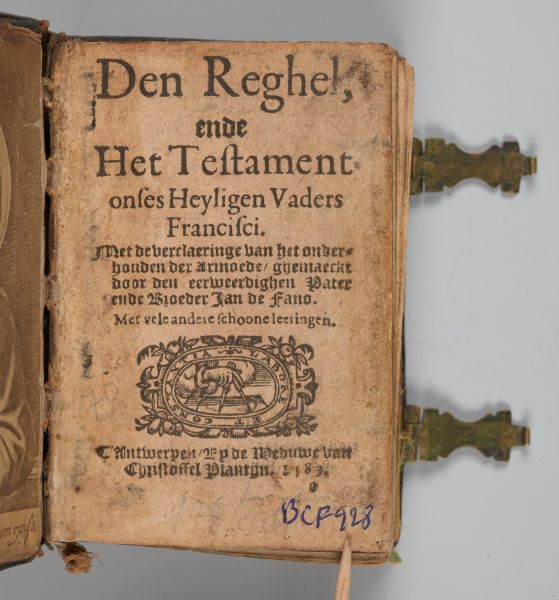 Den Reghel,
ende
Het Teſtament
onſes Heyligen Vaders
Franciſci.
Met de verclaeringe van het onder-
houden der Armoede/ ghemaeckt
door den eerweerdighen Pater
ende Broeder Jan de Fano.
Met vele andere ſchoone leeringen.
LABORE ET CONSTANTIA
T'Antwerpen/ By de Weduwe van
Chriſtoffel Plantijn. 1589.
BCF928